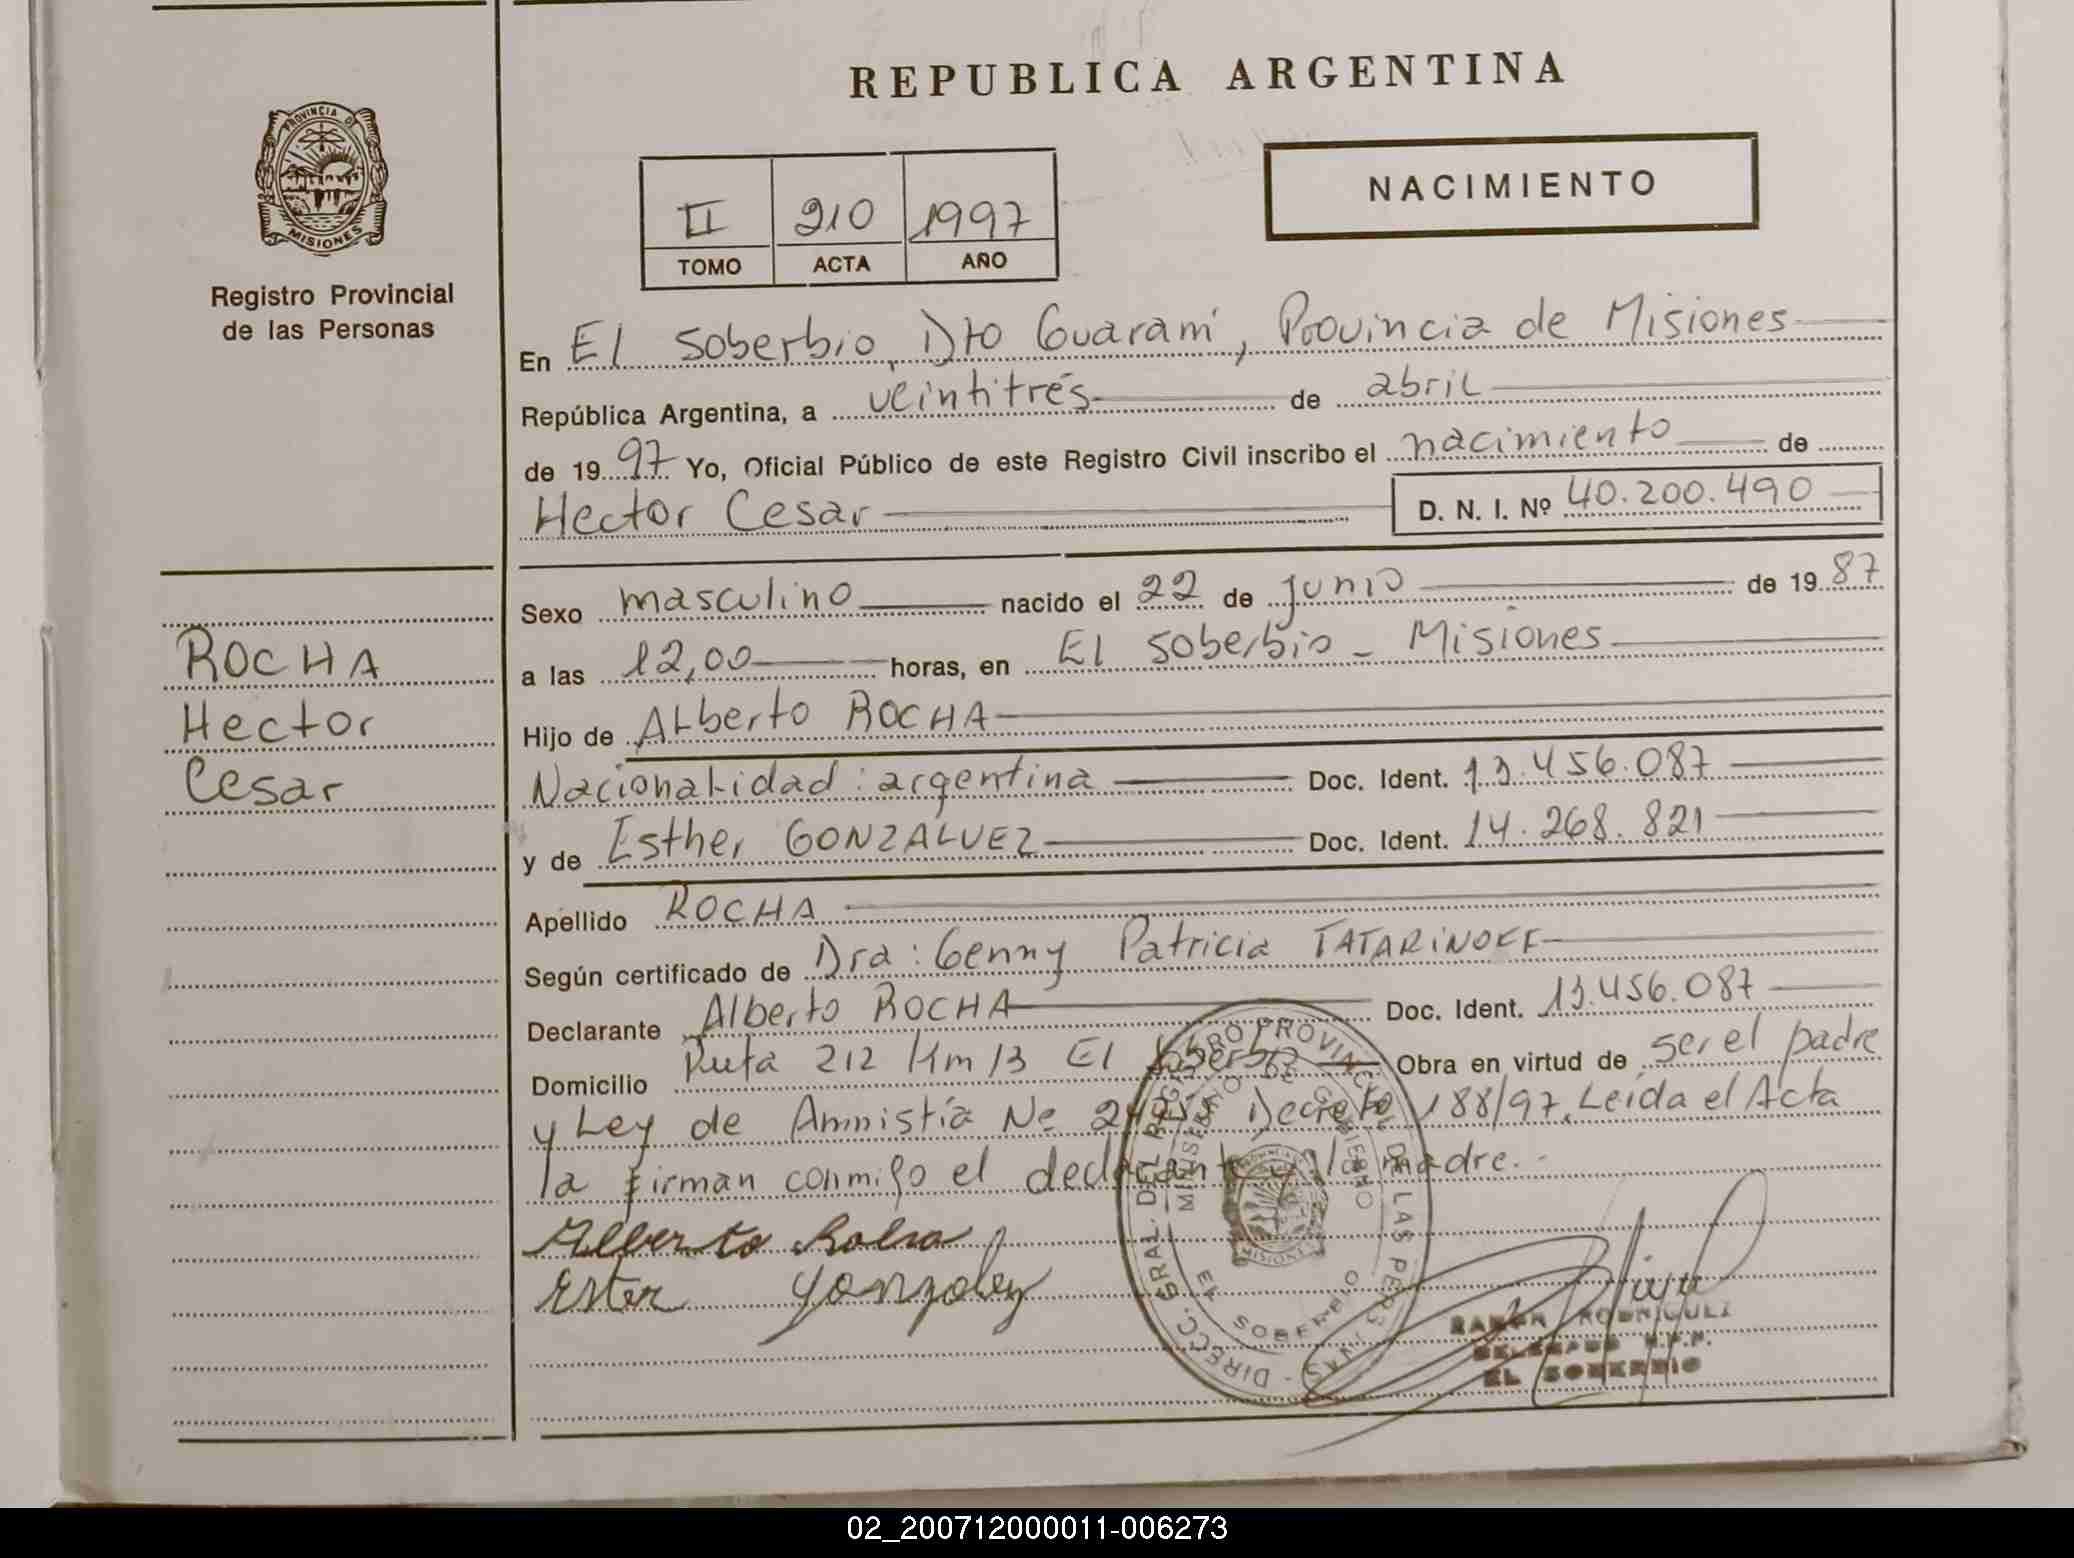 REPUBLICA ARGENTINA
PROVINCIA DE
MISIONES
Registro Provincial
de las Personas
NACIMIENTO
II 210 1997
TOMO ACTA AÑO
En El Soberbio, Dto Guaraní, Provincia de Misiones
República Argentina, a veintitrés de abril
de 1997 Yo, Oficial Público de este Registro Civil inscribo el nacimiento de
Hector Cesar D. N. I. Nº 40.200.490
Sexo masculino nacido el 22 de junio de 1987
a las 12,00 horas, en El Soberbio - Misiones
Hijo de Alberto ROCHA
Nacionalidad: argentina Doc. Ident. 13.456.087
y de Esther GONZALVEZ Doc. Ident. 14.268.821
Apellido ROCHA
Según certificado de Dra: Genny Patricia TATARINOFF
Declarante Alberto ROCHA Doc. Ident. 13.456.087
Domicilio Ruta 212 Km 13 El Soberbio Obra en virtud de ser el padre
y Ley de Amnistía Nº Decreto 188/97. Leída el Acta
la firman conmigo el declarante y la madre.-
Alberto Rocha
Ester Gonzalez
ROCHA
Hector
Cesar
DIRECC. GRAL. DEL REGISTRO PROVINCIAL DE LAS PERSONAS
MINISTERIO DE GOBIERNO
EL SOBERBIO
MISIONES
RAMON RODRIGUEZ
DELEGADO R.P.P.
EL SOBERBIO
02_200712000011-006273